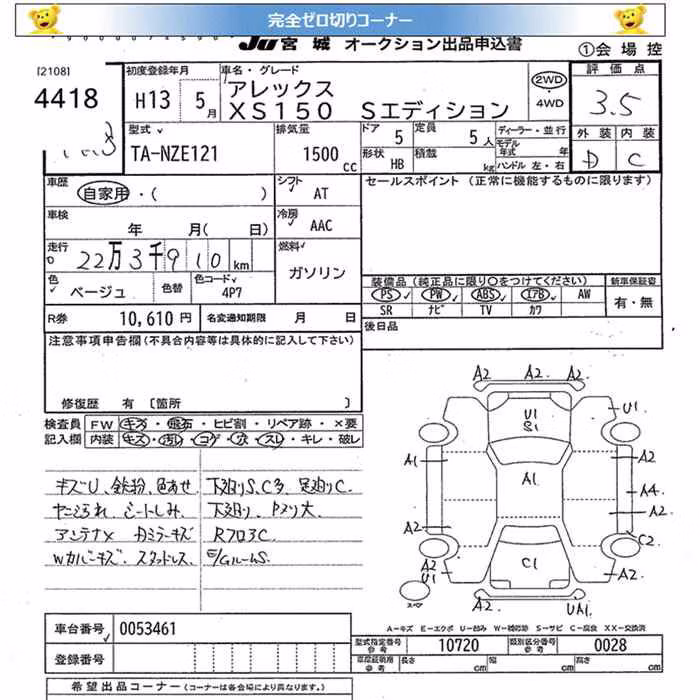 完全ゼロ切りコーナー
JU 宮城 オークション出品申込書
①会場控
[2108]
4418
初度登録年月
H13 5月
車名・グレード
アレックス
XS150 Sエディション
2WD
・
4WD
評価点
3.5
外装 内装
D C
型式
TA-NZE121
排気量
1500 cc
ドア 5
定員 5人
形状 HB
積載 kg
ディーラー・並行
モデル年式 年
ハンドル 左・右
車歴
自家用・( )
シフト
AT
セールスポイント (正常に機能するものに限ります)
車検
年 月( 日)
冷房
AAC
走行
22万3千910km
燃料
ガソリン
色
ベージュ
色替
色コード
4P7
装備品 (純正品に限り○をつけてください)
新車保証書
PS PW ABS エアB AW
有・無
SR ナビ TV カワ
R券 10,610円 名変通知期限 月 日
後日品
注意事項申告欄(不具合内容等は具体的に記入して下さい)
修復歴 有 [箇所 ]
検査員
記入欄
FW キズ・飛石・ヒビ割・リペア跡・×要
内装 キズ・汚れ・コゲ・穴・スレ・キレ・破レ
キズU、鉄粉、色あせ 下廻りS,C多 足廻りC.
ヤニよごれ シートしみ 下廻り
アンテナ× ドアミラーキズ RフロアC
Wカバーキズ スタッドレス E/GルームS.
A2 A2. A2.
U1
S1
U1
A1 A1 A2
A4
A2 A2
C2
A2
U1
C1
A2
スペア
A2 UA1.
A－キズ E－エクボ U－凹み W－補修跡 S－サビ C－腐食 XX－交換済
車台番号 0053461
型式指定番号
参考
10720
類別区分番号
参考
0028
登録番号
車庫証明用
参考
長さ cm 幅 cm 高さ cm
希望出品コーナー (コーナーは各会場により異なります。)